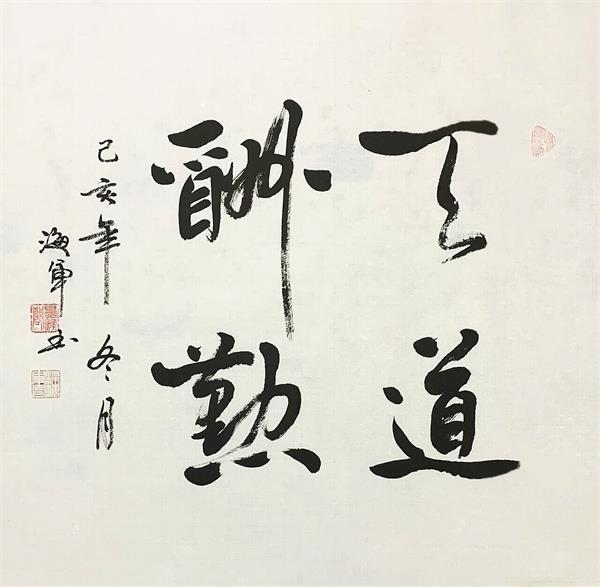 天道
酬勤
己亥年冬月
海军书